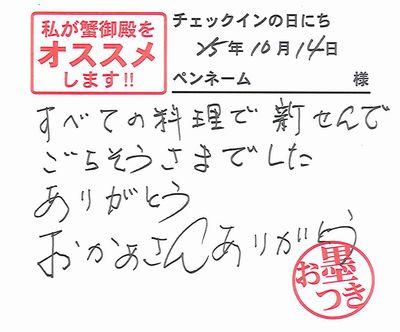 私が蟹御殿を
オススメ
します!!
チェックインの日にち
'15年10月14日
ペンネーム 様
すべての料理で新せんで
ごちそうさまでした
ありがとう
おかあさんありがとう
お墨つき